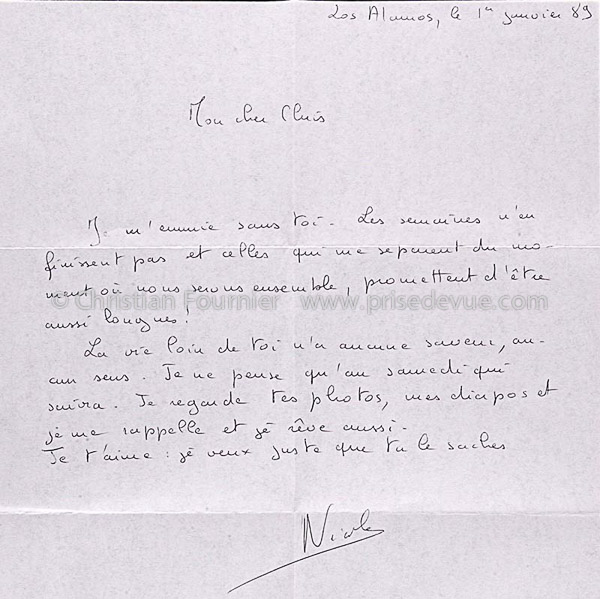 Los Alamos, le 1er janvier 89
Mon cher Chris
Je m'ennuie sans toi. Les semaines n'en
finissent pas et celles qui me separent du mo-
ment où nous serons ensemble, promettent d'être
aussi longues!
© Christian Fournier www.prisedevue.com
La vie loin de toi n'a aucune saveur, au-
cun sens. Je ne pense qu'au samedi qui
suivra. Je regarde tes photos, mes diapos et
je me rappelle et je rêve aussi.
Je t'aime : je veux juste que tu le saches
Nicole